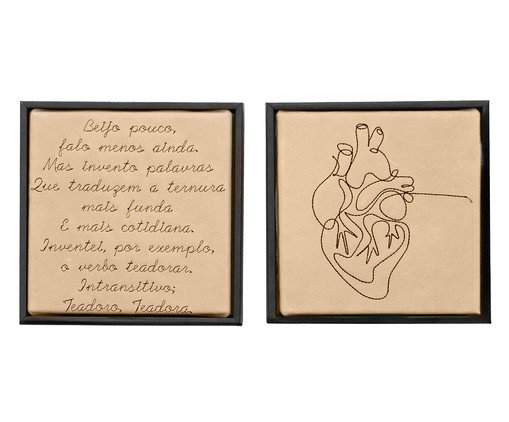 Beijo pouco,
falo menos ainda.
Mas invento palavras
Que traduzem a ternura
mais funda
E mais cotidiana.
Inventei, por exemplo,
o verbo teadorar.
Intransitivo;
Teadoro, Teadora.